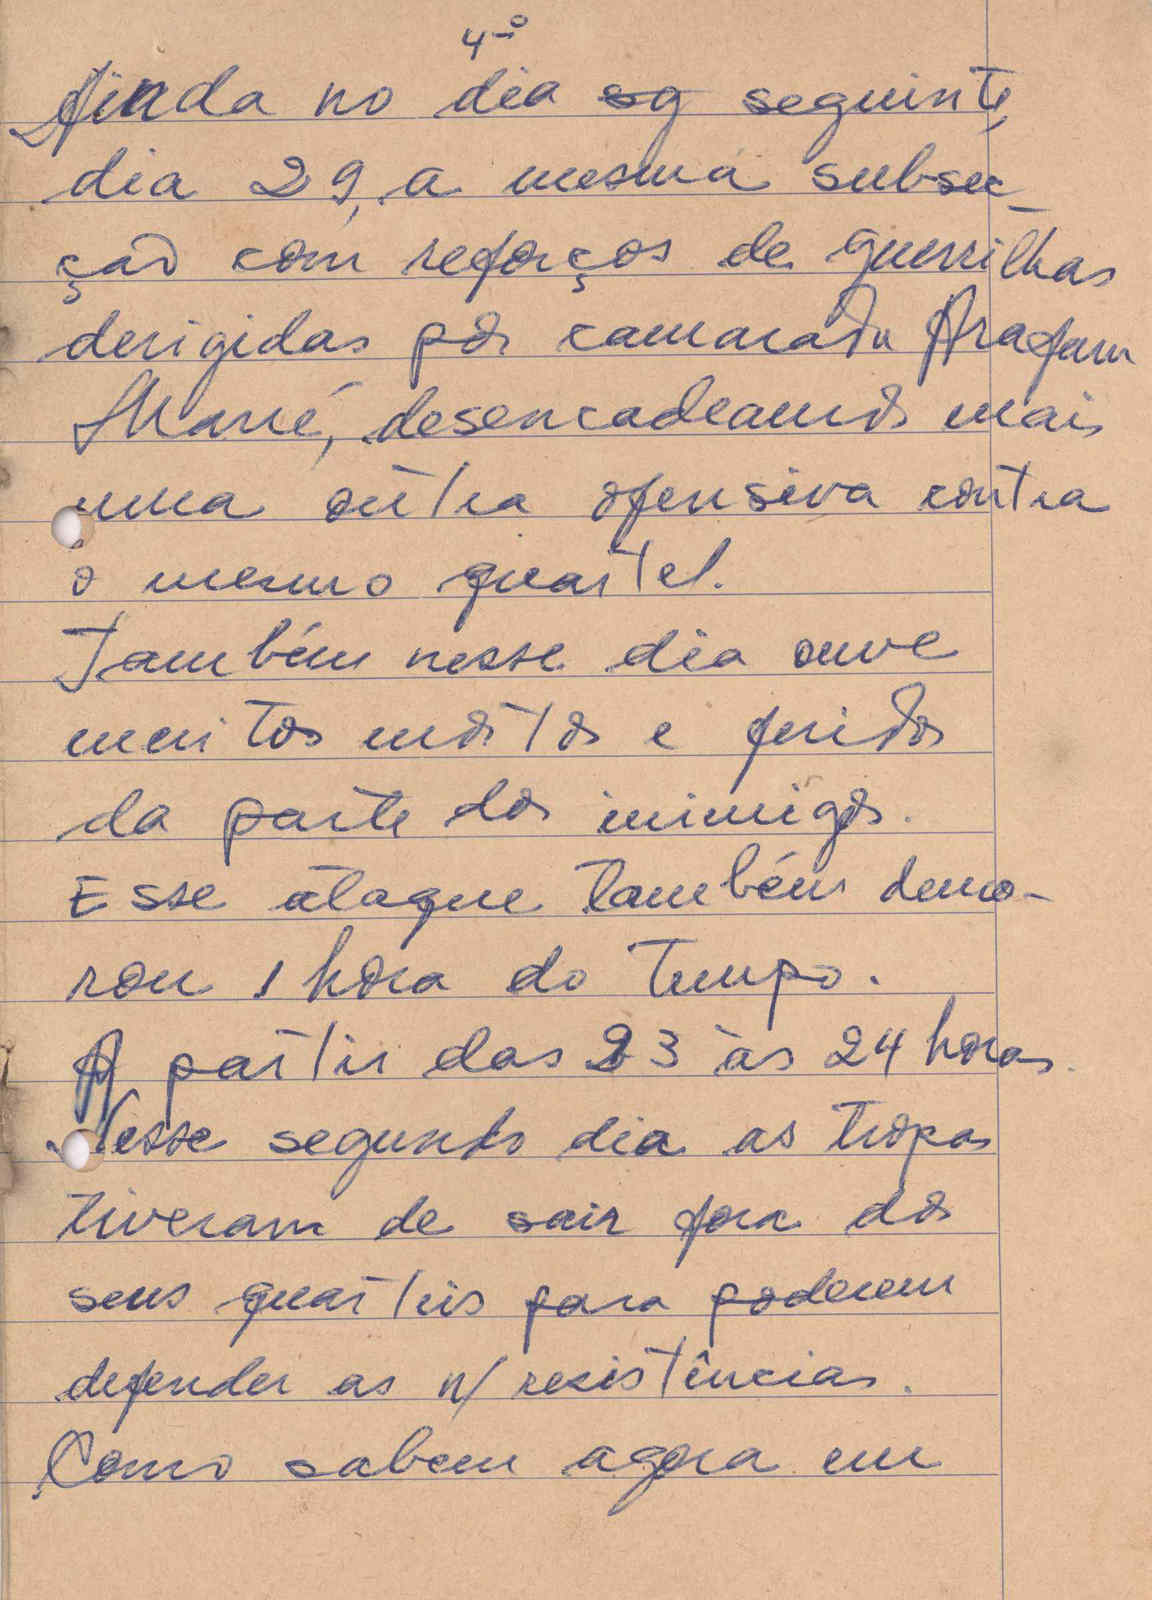 4º
Ainda no dia sg seguinte,
dia 29, a mesma subsec-
ção com reforços de guerrilhas
derigidas por camarada Arafam
Mané, desencadeamos mais
uma outra ofensiva contra
o mesmo quartel.
Também nesse dia ouve
muitos mortos e feridos
da parte dos inimigos.
Esse ataque também demo-
rou 1 hora do tempo.
A partir das 23 às 24 horas.
Nesse segundo dia as tropas
tiveram de sair fora dos
seus quarteis para poderem
defender as n/ resistências.
Como sabem agora em